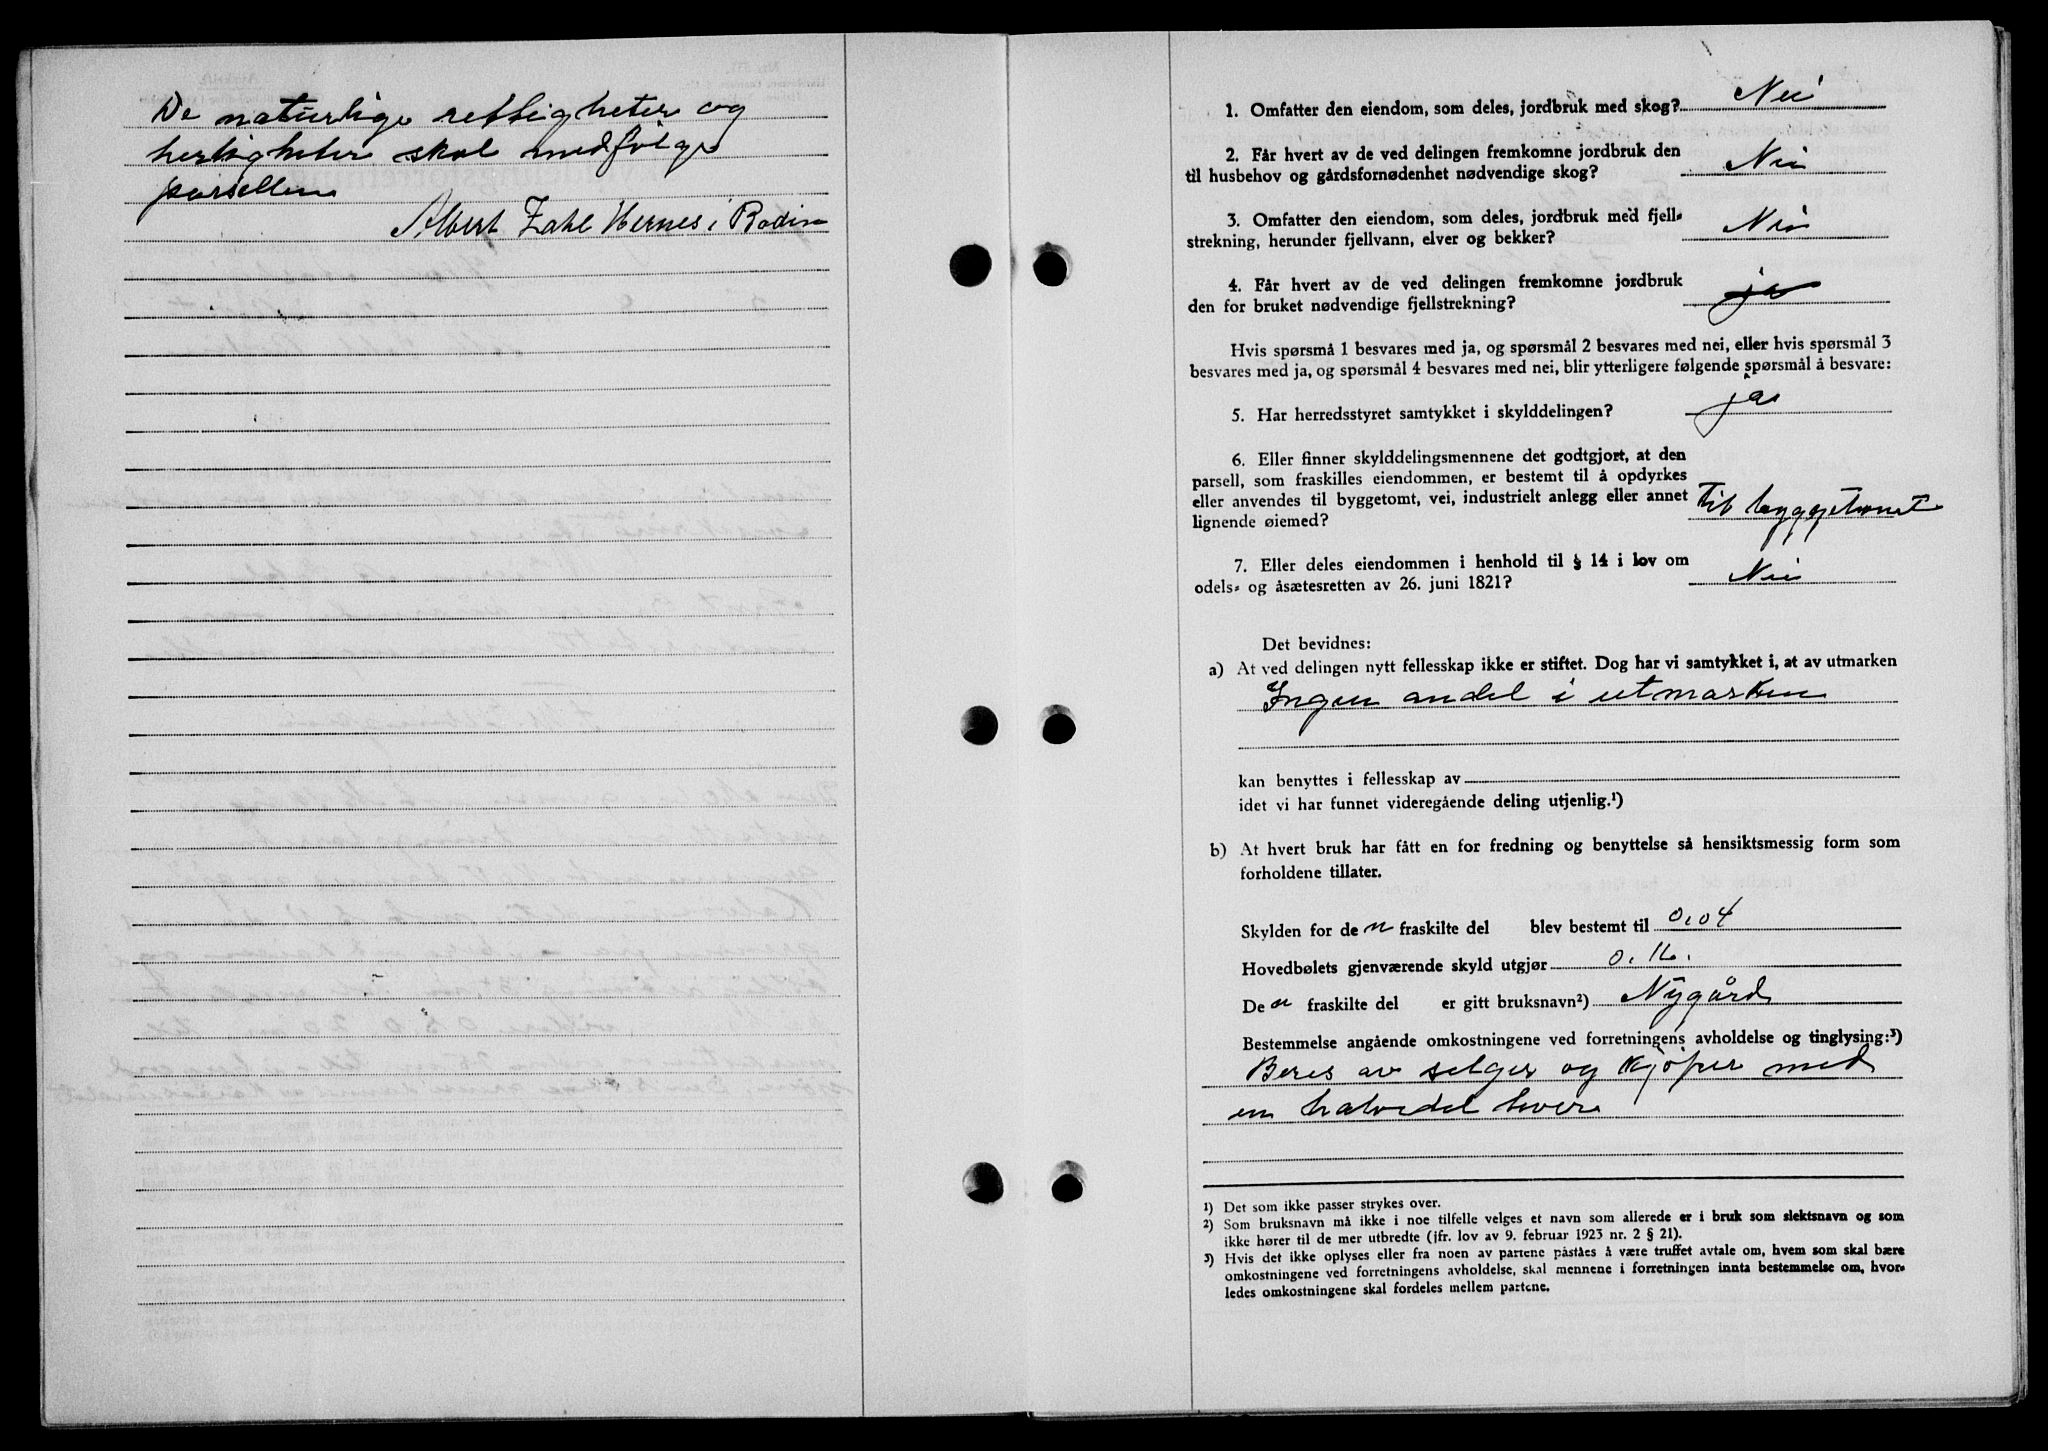 De naturlige rettigheter og
herligheter skal medfølge
parsellen
Albert Zahl Hernes i Bodin
1. Omfatter den eiendom, som deles, jordbruk med skog? Nei
2. Får hvert av de ved delingen fremkomne jordbruk den
til husbehov og gårdsfornødenhet nødvendige skog? Nei
3. Omfatter den eiendom, som deles, jordbruk med fjell-
strekning, herunder fjellvann, elver og bekker? Nei
4. Får hvert av de ved delingen fremkomne jordbruk
den for bruket nødvendige fjellstrekning? ja
Hvis spørsmå 1 besvares med ja, og spørsmål 2 besvares med nei, eller hvis spørsmål 3
besvares med ja, og spørsmål 4 besvares med nei, blir ytterligere følgende spørsmål å besvare:
5. Har herredsstyret samtykket i skylddelingen? ja
6. Eller finner skylddelingsmennene det godtgjort, at den
parsell, som fraskilles eiendommen, er bestemt til å opdyrkes
eller anvendes til byggetomt, vei, industrielt anlegg eller annet
lignende øiemed? Til byggetomt
7. Eller deles eiendommen i henhold til § 14 i lov om
odels- og åsætesretten av 26. juni 1821? Nei
Det bevidnes:
a) At ved delingen nytt fellesskap ikke er stiftet. Dog har vi samtykket i, at av utmarken
Ingen andel i utmarken
kan benyttes i fellesskap av
idet vi har funnet videregående deling utjenlig.¹)
b) At hvert bruk har fått en for fredning og benyttelse så hensiktsmessig form som
forholdene tillater.
Skylden for den fraskilte del blev bestemt til 0.04
Hovedbølets gjenværende skyld utgjør 0.16.
Den fraskilte del er gitt bruksnavn²) Nygård
Bestemmelse angående omkostningene ved forretningens avholdelse og tinglysing:³)
Beres av selger og kjøper med
en halvdel hver
¹) Det som ikke passer strykes over.
²) Som bruksnavn må ikke i noe tilfelle velges et navn som allerede er i bruk som slektsnavn og som
ikke hører til de mer utbredte (jfr. lov av 9. februar 1923 nr. 2 § 21).
³) Hvis det ikke oplyses eller fra noen av partene påståes å være truffet avtale om, hvem som skal bære
omkostningene ved forretningens avholdelse, skal mennene i forretningen innta bestemmelse om, hvor-
ledes omkostningene skal fordeles mellem partene.